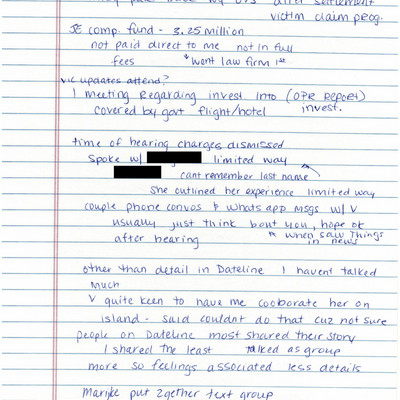 paid back by OJS after settlement
victim claim prog.
JE comp. fund - 3.25 million
not paid direct to me not in full
fees * went law firm 1st
vic updates attend?
1 meeting Regarding invest. into (OPR REPORT)
covered by govt flight/hotel invest.
time of hearing charges dismissed
Spoke w/ limited way
cant remember last name
She outlined her experience limited way
couple phone convos & whats app msgs w/ V
usually just think bout you, hope ok
after hearing " when saw things
in news
other than detail in Dateline I havent talked
much
V quite keen to have me cooborate her on
island - said couldnt do that cuz not sure
people on Dateline most shared their story
I shared the least talked as group
more so feelings associated less details
Marijke put 2gether text group